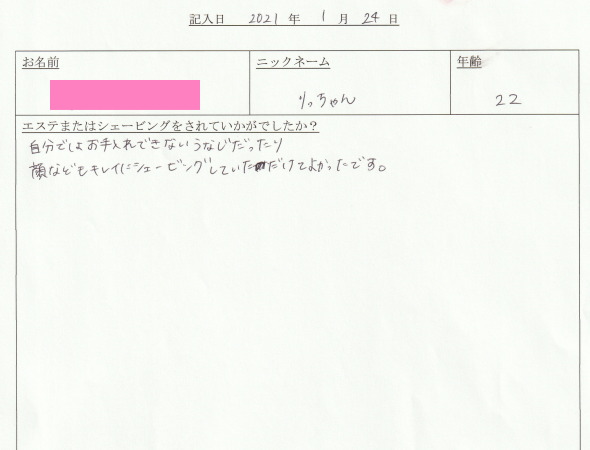 記入日 2021 年 1 月 24 日
お名前 ニックネーム 年齢
りっちゃん 22
エステまたはシェービングをされていかがでしたか？
自分でしよお手入れできないうなじだったり
顔などもキレイにシェービングしていただけてよかったです。